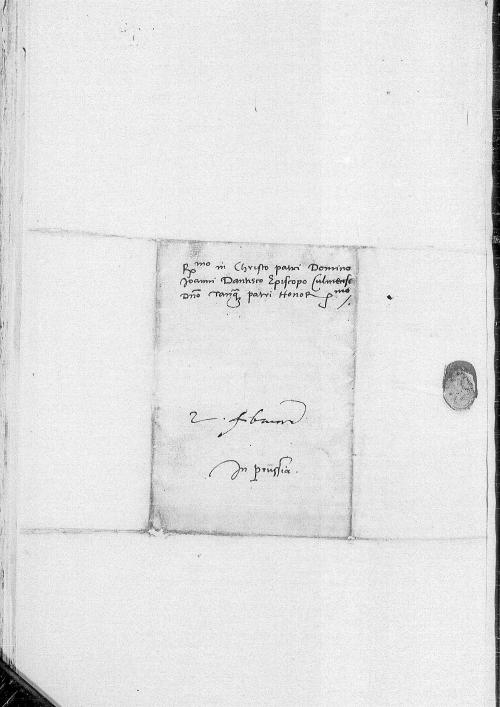 R^mo in Christo patri Domino
Joanni Dantisco Episcopo Culmense
Dno Tanq patri Honor^mo
2
In Prussia.